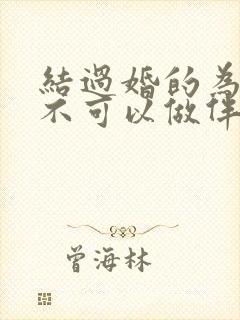 結過婚的為
不可以做伴
曾海林